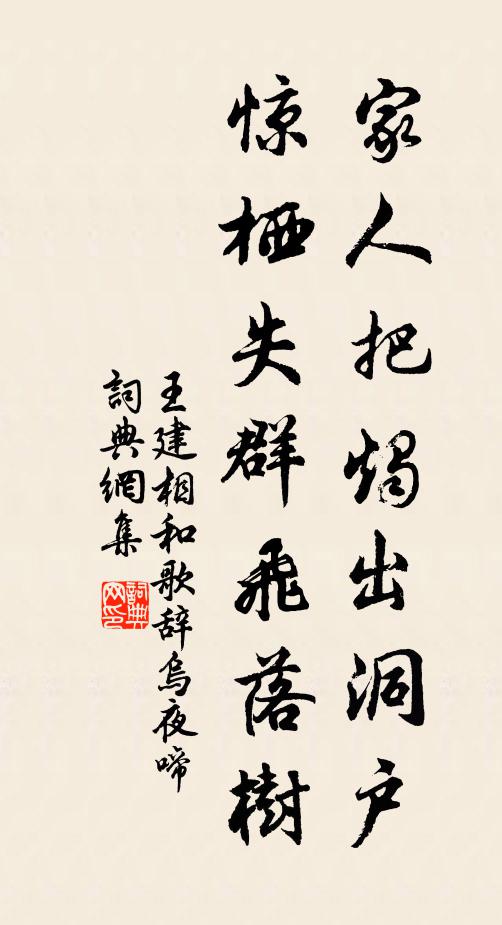 家人把烛出洞户
惊栖失群飛落樹
王建相和歌辞烏夜啼
詞典網集
詞典网印